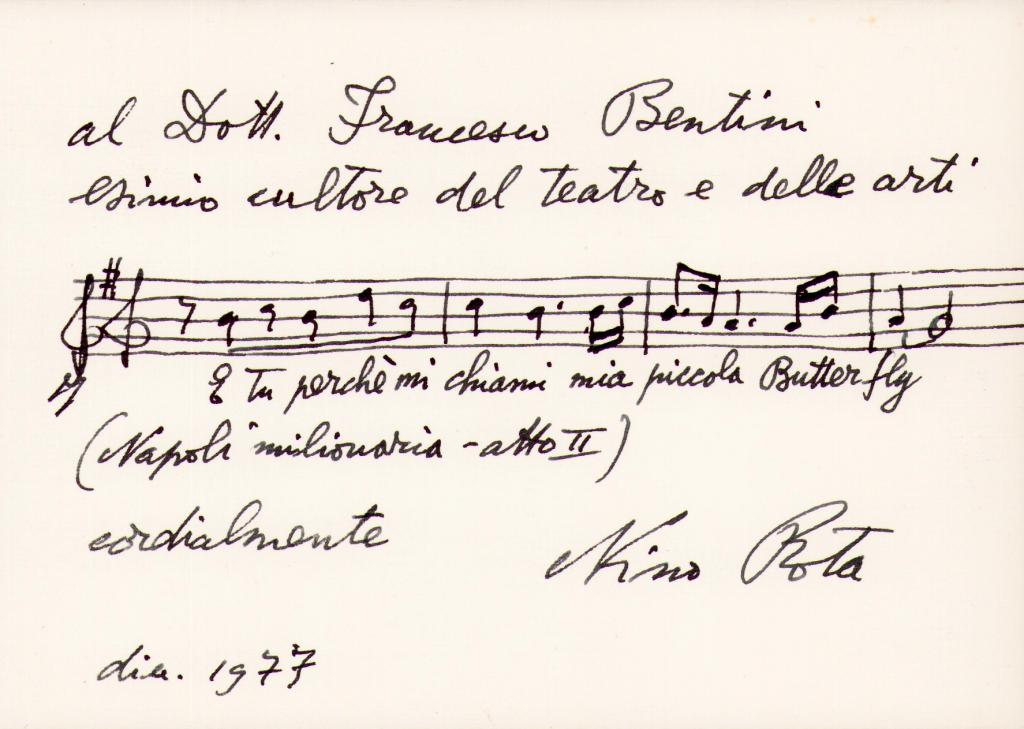 al Dott. Francesco Bentini
esimio cultore del teatro e delle arti
E Tu perchè mi chiami mia piccola Butterfly
(Napoli milionaria - atto II)
cordialmente
Nino Rota
dic. 1977